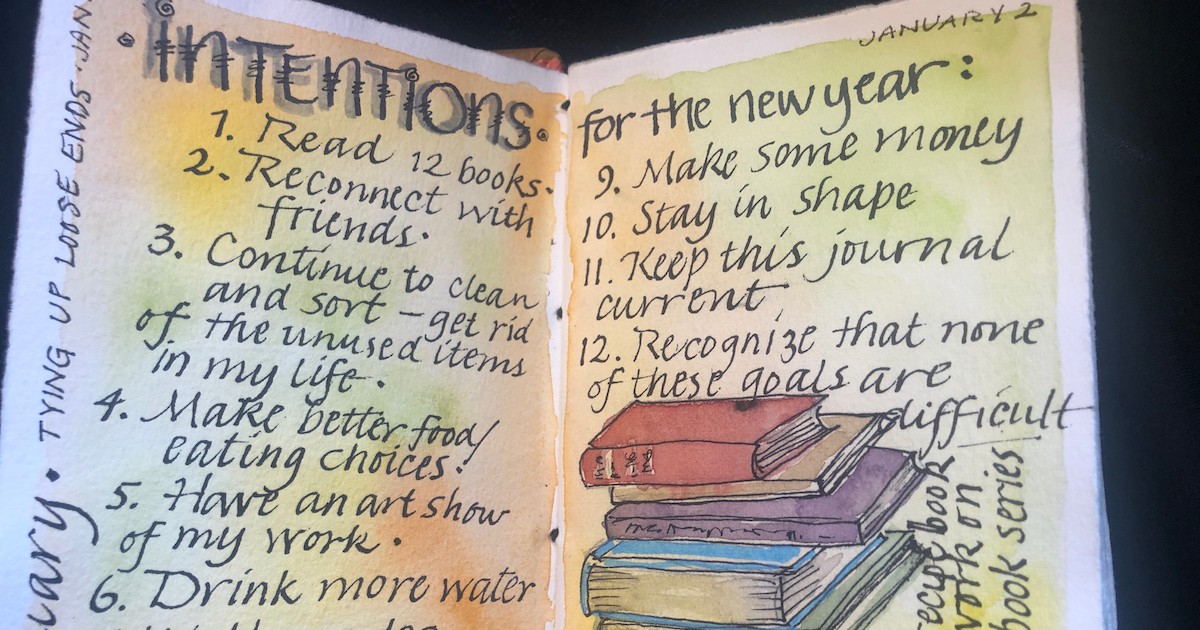 INTENTIONS.
1. Read 12 books.
2. Reconnect with
friends.
3. Continue to clean
and sort – get rid
of the unused items
in my life.
4. Make better food/
eating choices.
5. Have an art show
of my work.
6. Drink more water
TYING UP LOOSE ENDS · JAN
JANUARY 2
for the new year:
9. Make some money
10. Stay in shape
11. Keep this journal
current
12. Recognize that none
of these goals are
difficult
work on
book series